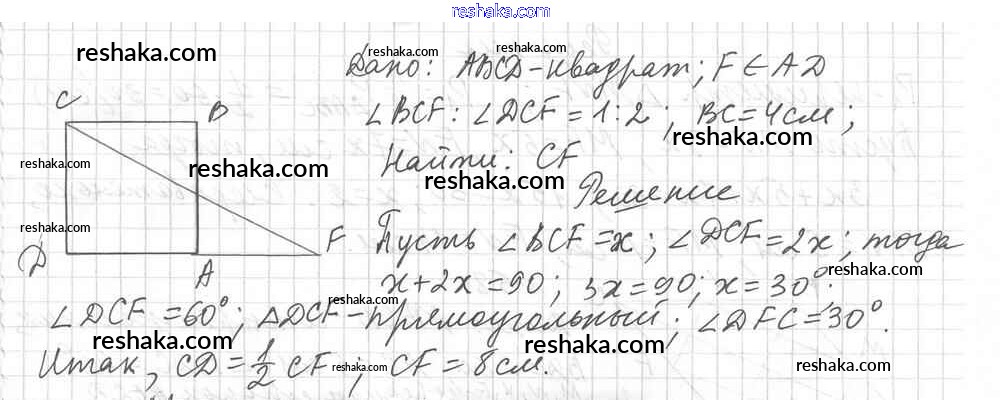 reshaka.com
reshaka.com reshaka.com reshaka.com
Дано: ABCD-квадрат; F∈AD
C B
∠BCF:∠DCF=1:2; BC=4см;
reshaka.com reshaka.com reshaka.com
reshaka.com reshaka.com
Найти: CF
reshaka.com
Решение
reshaka.com
D A F
Пусть ∠BCF=x; ∠DCF=2x; тогда
x+2x=90; 3x=90; x=30°;
reshaka.com
reshaka.com
∠DCF=60°; △DCF-прямоугольный; ∠DFC=30°.
reshaka.com reshaka.com
Итак, CD=1/2 CF; CF=8см.
reshaka.com